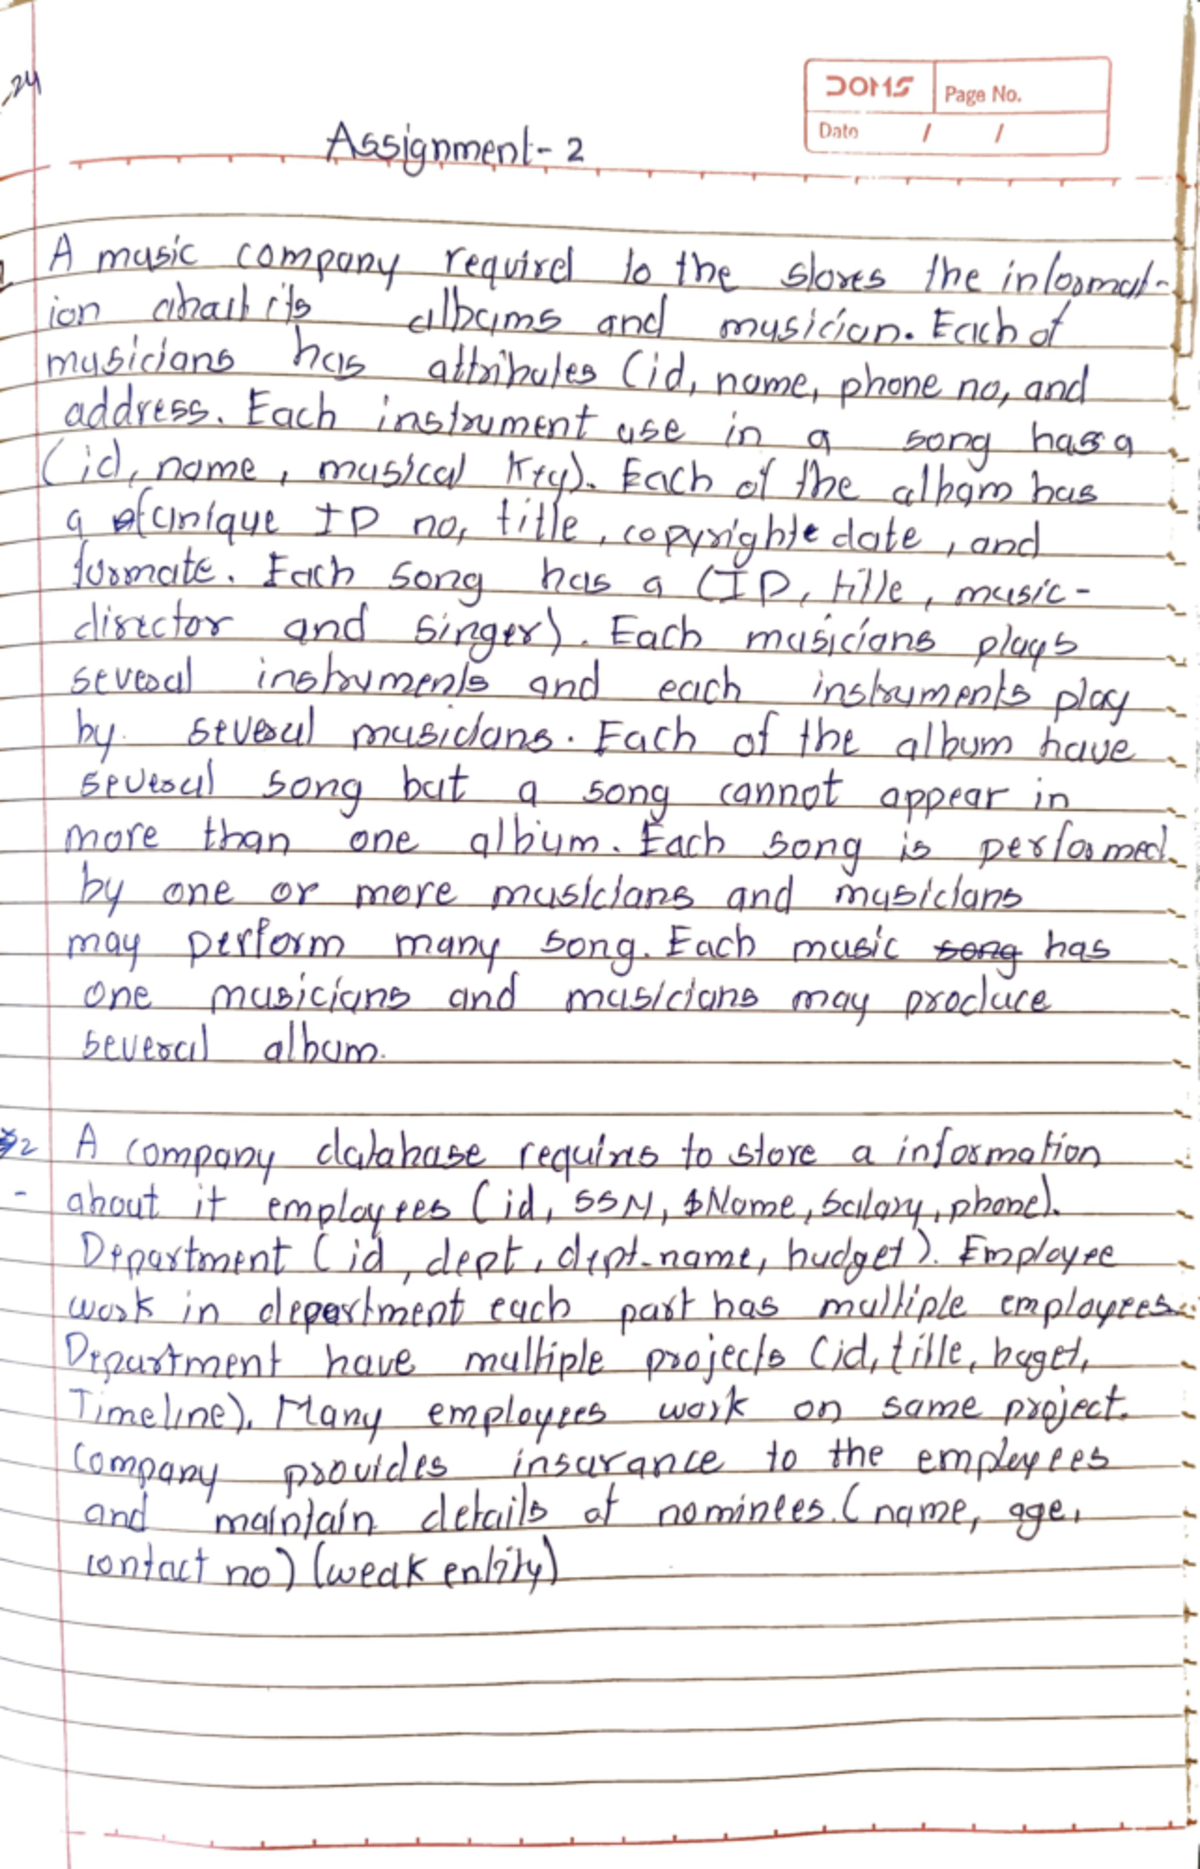 24
DOMS
Page No.
Date / /
Assignment-2
A music company required to the stores the informat-
ion about its albums and musician. Each of
musicians has attributes (id, name, phone no, and
address. Each instrument use in a song has a
(id, name, musical key). Each of the album has
a (unique ID no, title, copyrighte date, and
formate. Each song has a (ID, title, music-
director and singer). Each musicians plays
several instruments and each instruments play
by several musicians. Each of the album have
several song but a song cannot appear in
more than one album. Each song is performed
by one or more musicians and musicians
may perform many song. Each music song has
one musicians and musicians may produce
several album.
2 A company database requires to store a information
- about it employees (id, SSN, Name, Salary, phone).
Department (id, dept, dept-name, budget). Employee
work in department each part has multiple employees.
Department have multiple projects (id, title, buget,
Timeline). Many employees work on same project.
Company provides insurance to the employees
and maintain details of nominees. (name, age,
contact no) (weak entity)